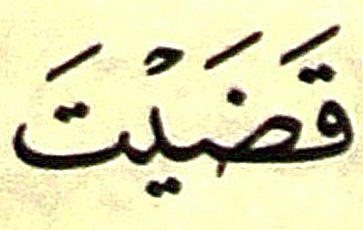 قَضَيْتَ